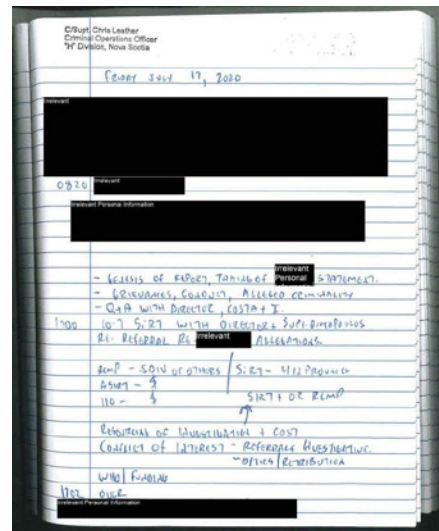 C/Supt. Chris Leather
Criminal Operations Officer
"H" Division, Nova Scotia
FRIDAY JULY 17, 2020
Irrelevant
0820 Irrelevant
Irrelevant Personal Information
- GENESIS OF REPORT, TAKING OF Irrelevant Personal STATEMENT.
- GRIEVANCES, CONDUCT, ALLEGED CRIMINALITY
- Q+A WITH DIRECTOR, COSTA + I.
1700 10-7 SiRT WITH DIRECTOR + SUPT. DIMOPOULOS
RE: REFERRAL RE Irrelevant ALLEGATIONS
RCMP - 5 DIV OR OTHERS / SiRT - 4/12 PROVINCE
ASIRT -
IIO -
SIRT + OR RCMP
RESOURCING OF INVESTIGATION + COST
CONFLICT OF INTEREST - REFERRALS INVESTIGATIVE.
- OPTICS / RETRIBUTION
WHO / FUNDING
1702 OVER
Irrelevant Personal Information